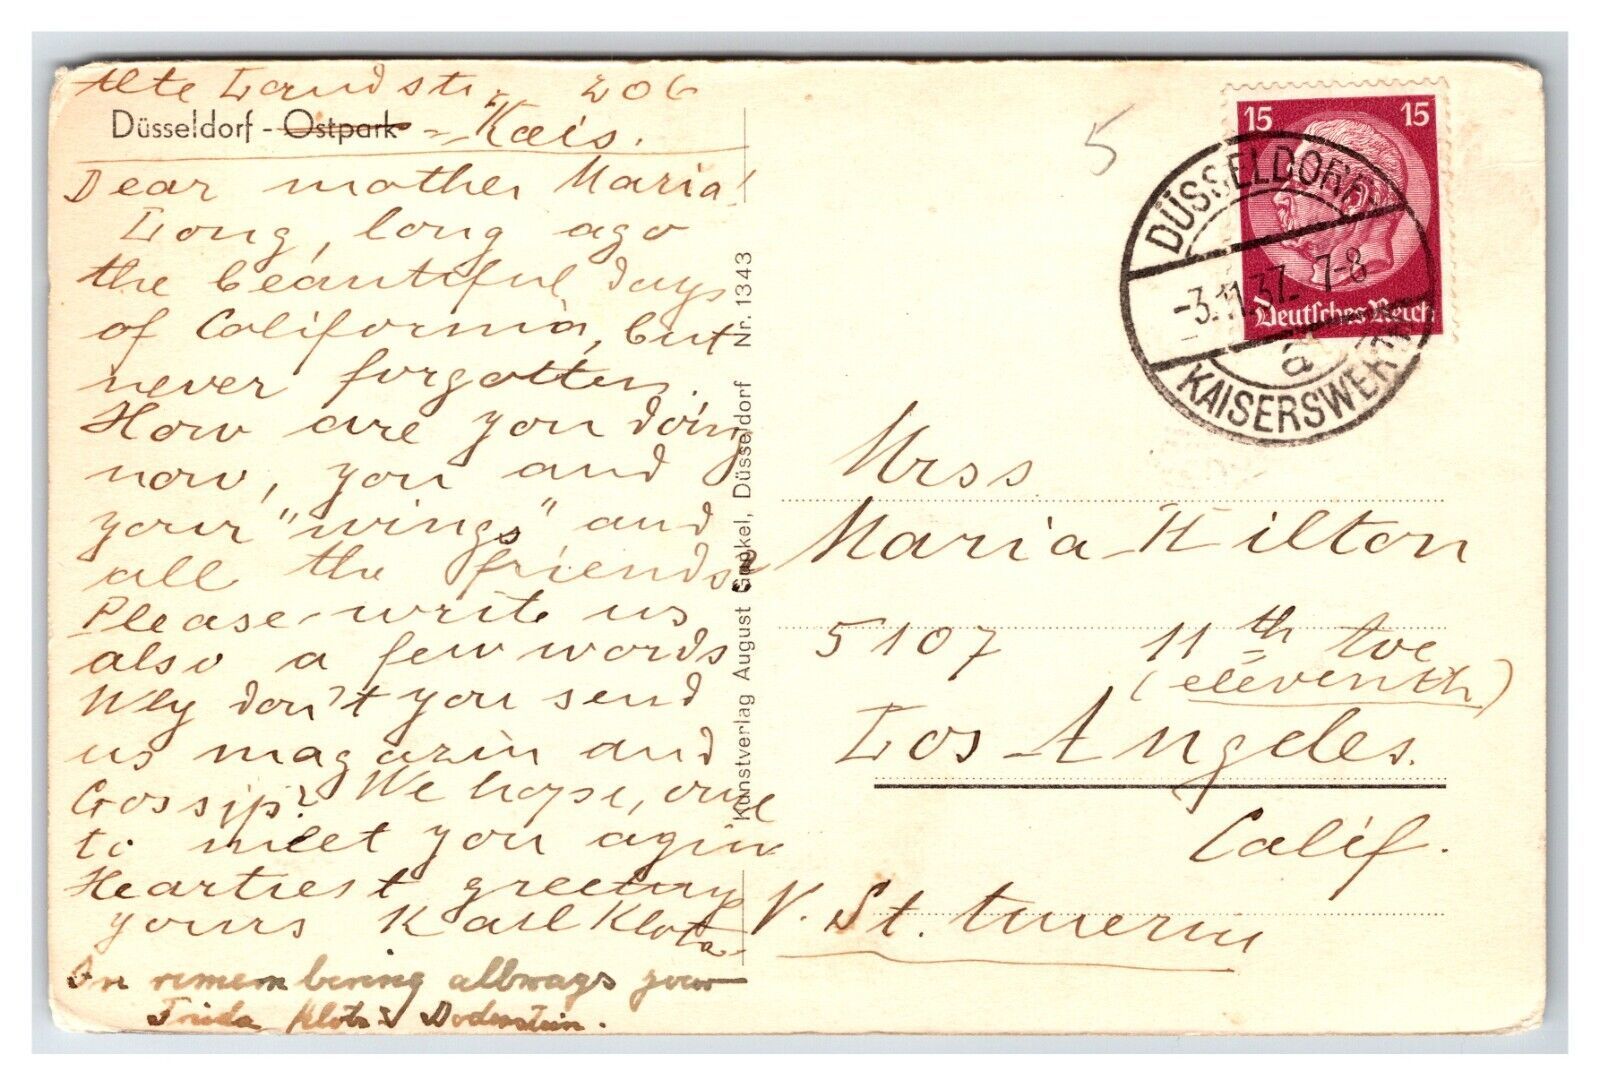 Alte Landstr. 206
Düsseldorf - Ostpark - Kais.
Dear mother Maria!
Long, long ago
the beautiful days
of California, but
never forgotten.
How are you doing
now, you and
your "wings" and
all the friends.
Please write us
also a few words
Why don't you send
us magazin and
Gossip? We hope, one
to meet you agin
Heartiest greetings
yours Karl Klotz
In remembering allways your
Frida Klotz Doderstein.
Kunstverlag August Gunkel, Düsseldorf Nr. 1343
5
15 15
Deutsches Reich
DÜSSELDORF
-3.11.37. 7-8
a
KAISERSWERTH
Mrss
Maria Hilton
5107 11th Ave
(eleventh)
Los Angeles.
Calif.
V. St. Amerim